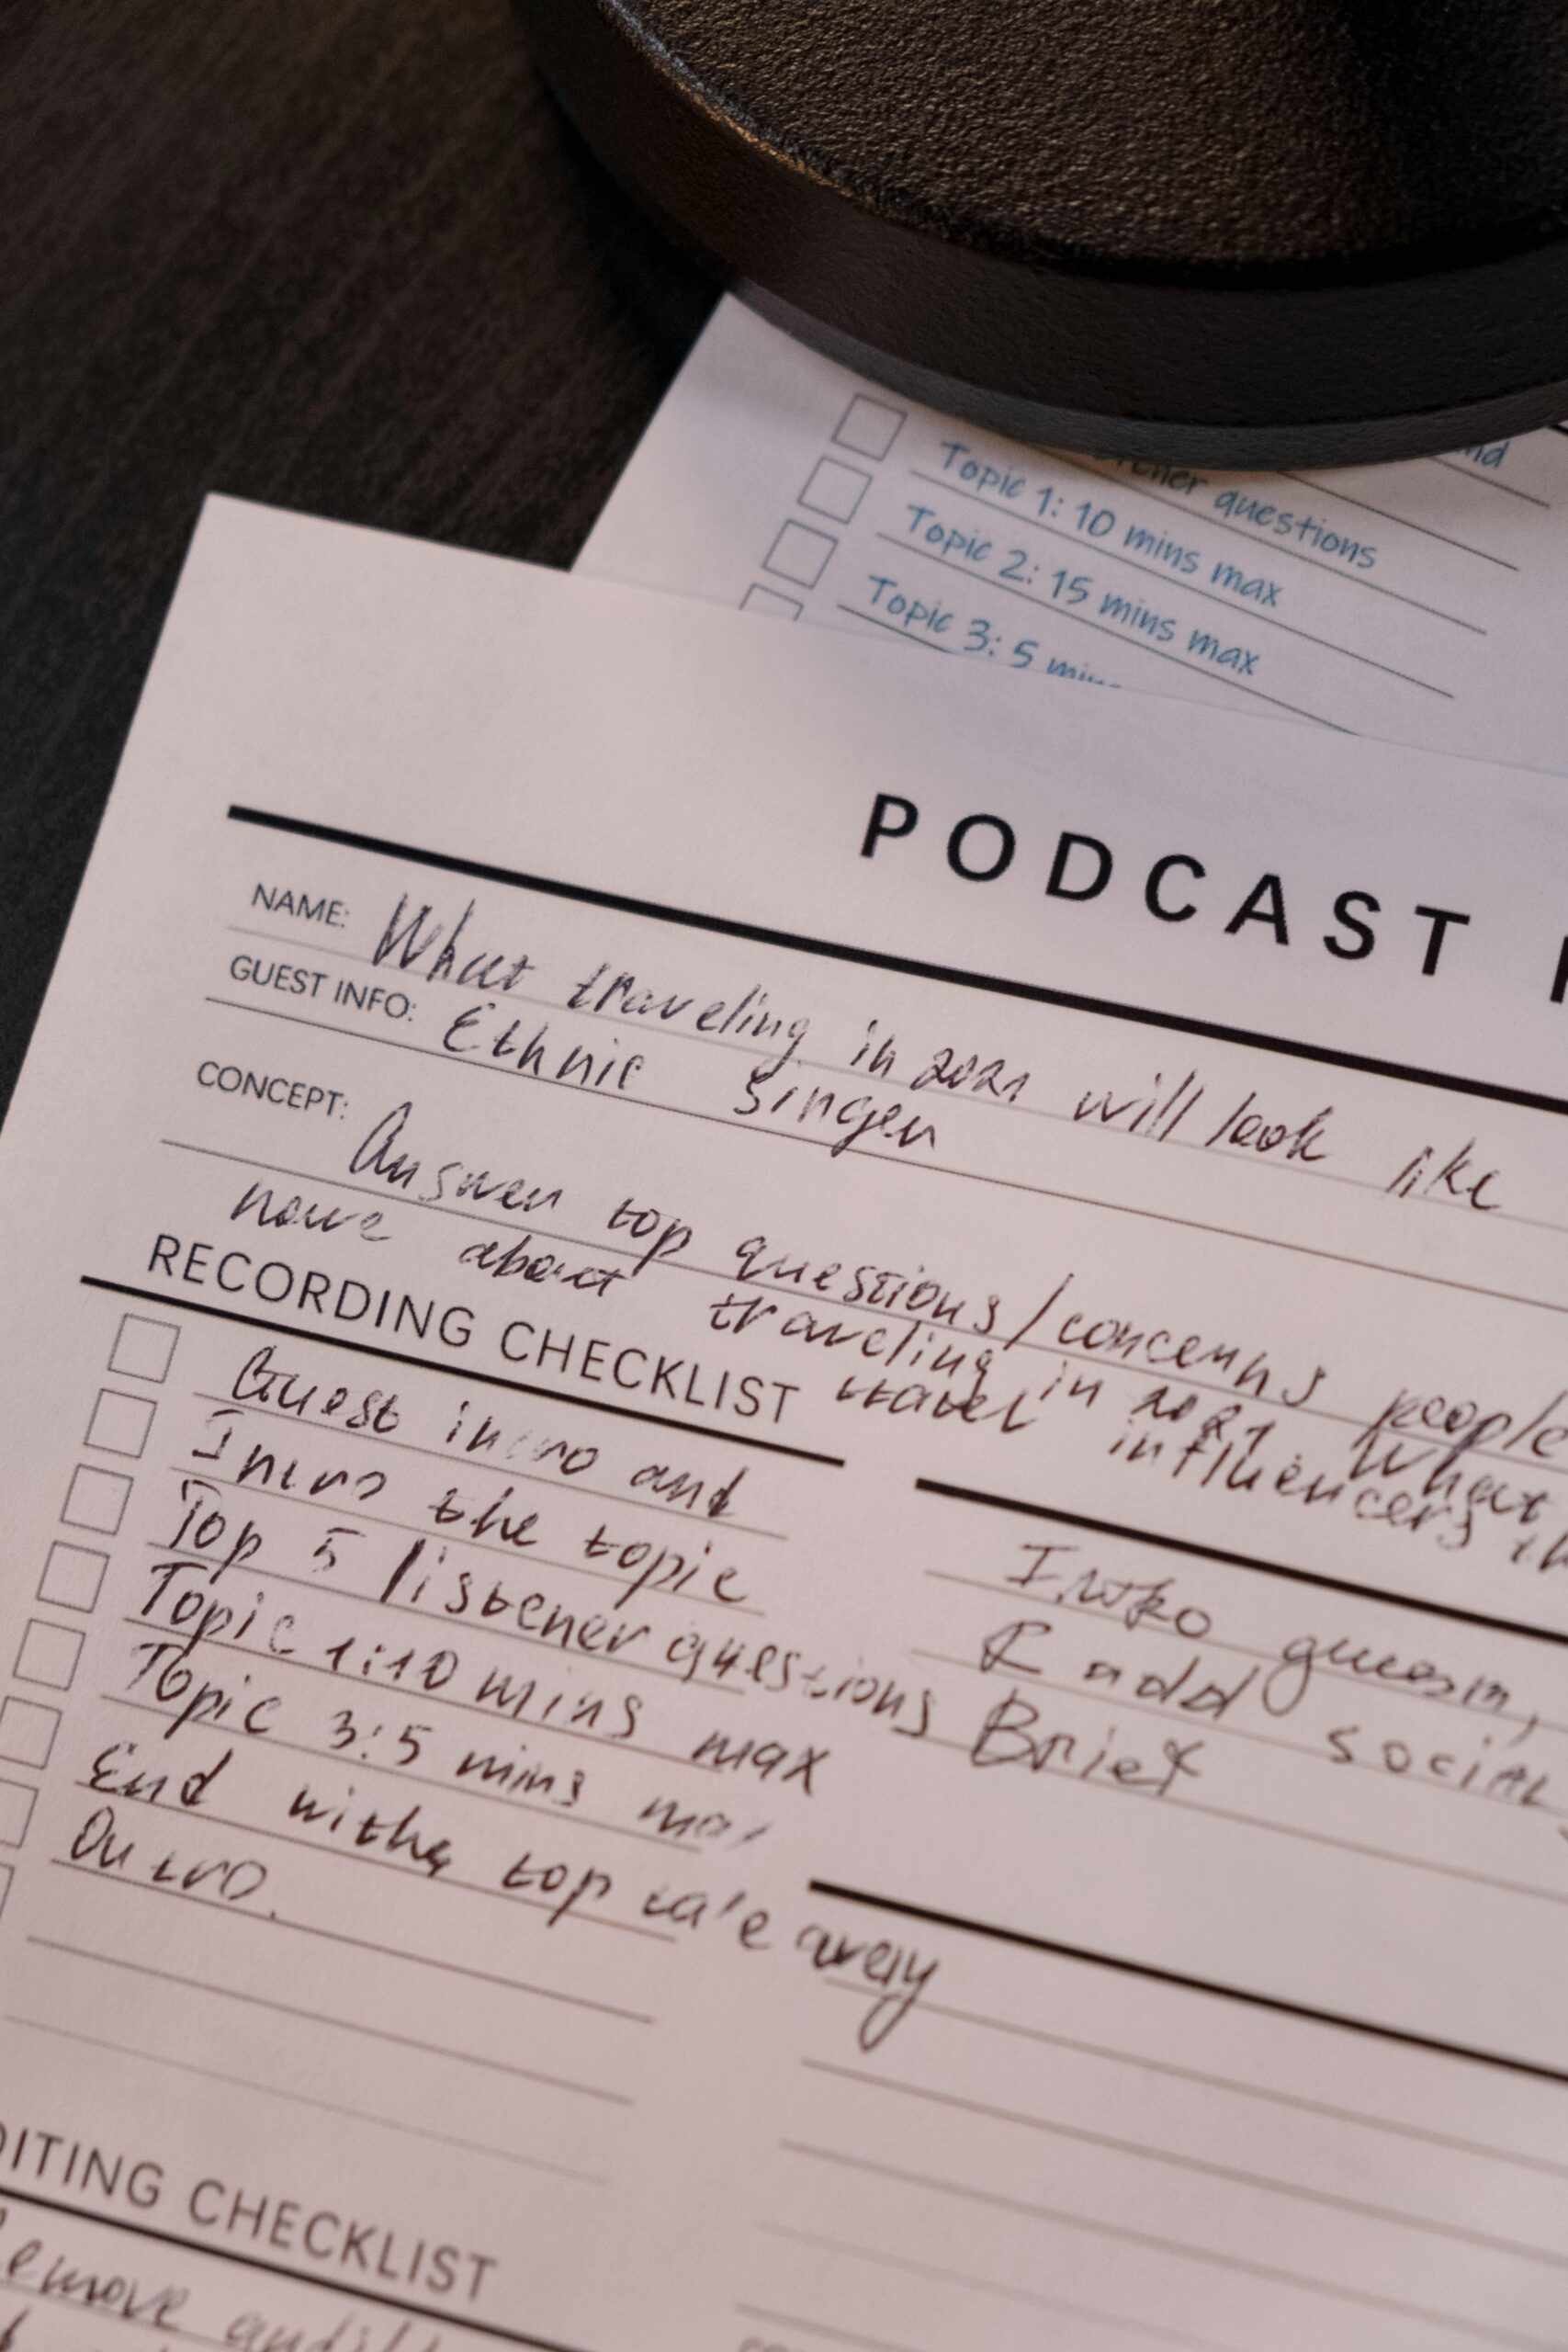 questions
Topic 1: 10 mins max
Topic 2: 15 mins max
Topic 3: 5
PODCAST
NAME: What traveling in 2021 will look like
GUEST INFO: Ethnic Singer
CONCEPT: Answer top questions/concerns people
about traveling in 2021 What
travel influencers
RECORDING CHECKLIST
Guest intro and
Intro the topic
Top 5 listener questions
Topic 1:10 mins max
Topic 3:5 mins
End with a top away
Outro.
add social
Brief
EDITING CHECKLIST